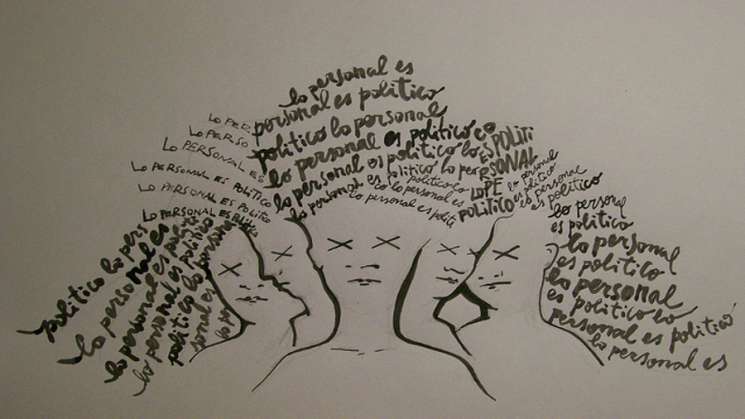 lo personal es
personal es politico
politico lo personal
lo personal es politico es
lo personal es politico lo
lo personal es
politico lo
es lo personal es
lo personal es politi
LO PE
LO PERSO
LO PERSONAL ES
LO PERSONAL ES POLITICO
LO PERSONAL ES POLITICO
LO PERSONAL ES
politico lo pers
lo personal es
lo personal es
lo personal es politico
politico lo
personal es
lo per
ES POLITI
PERSONAL
LO PE
POLITICO
lo personal
es politico
es personal
es politico
lo personal
es politico
lo personal
es politico
lo personal
es politico lo
personal es politico
lo personal es